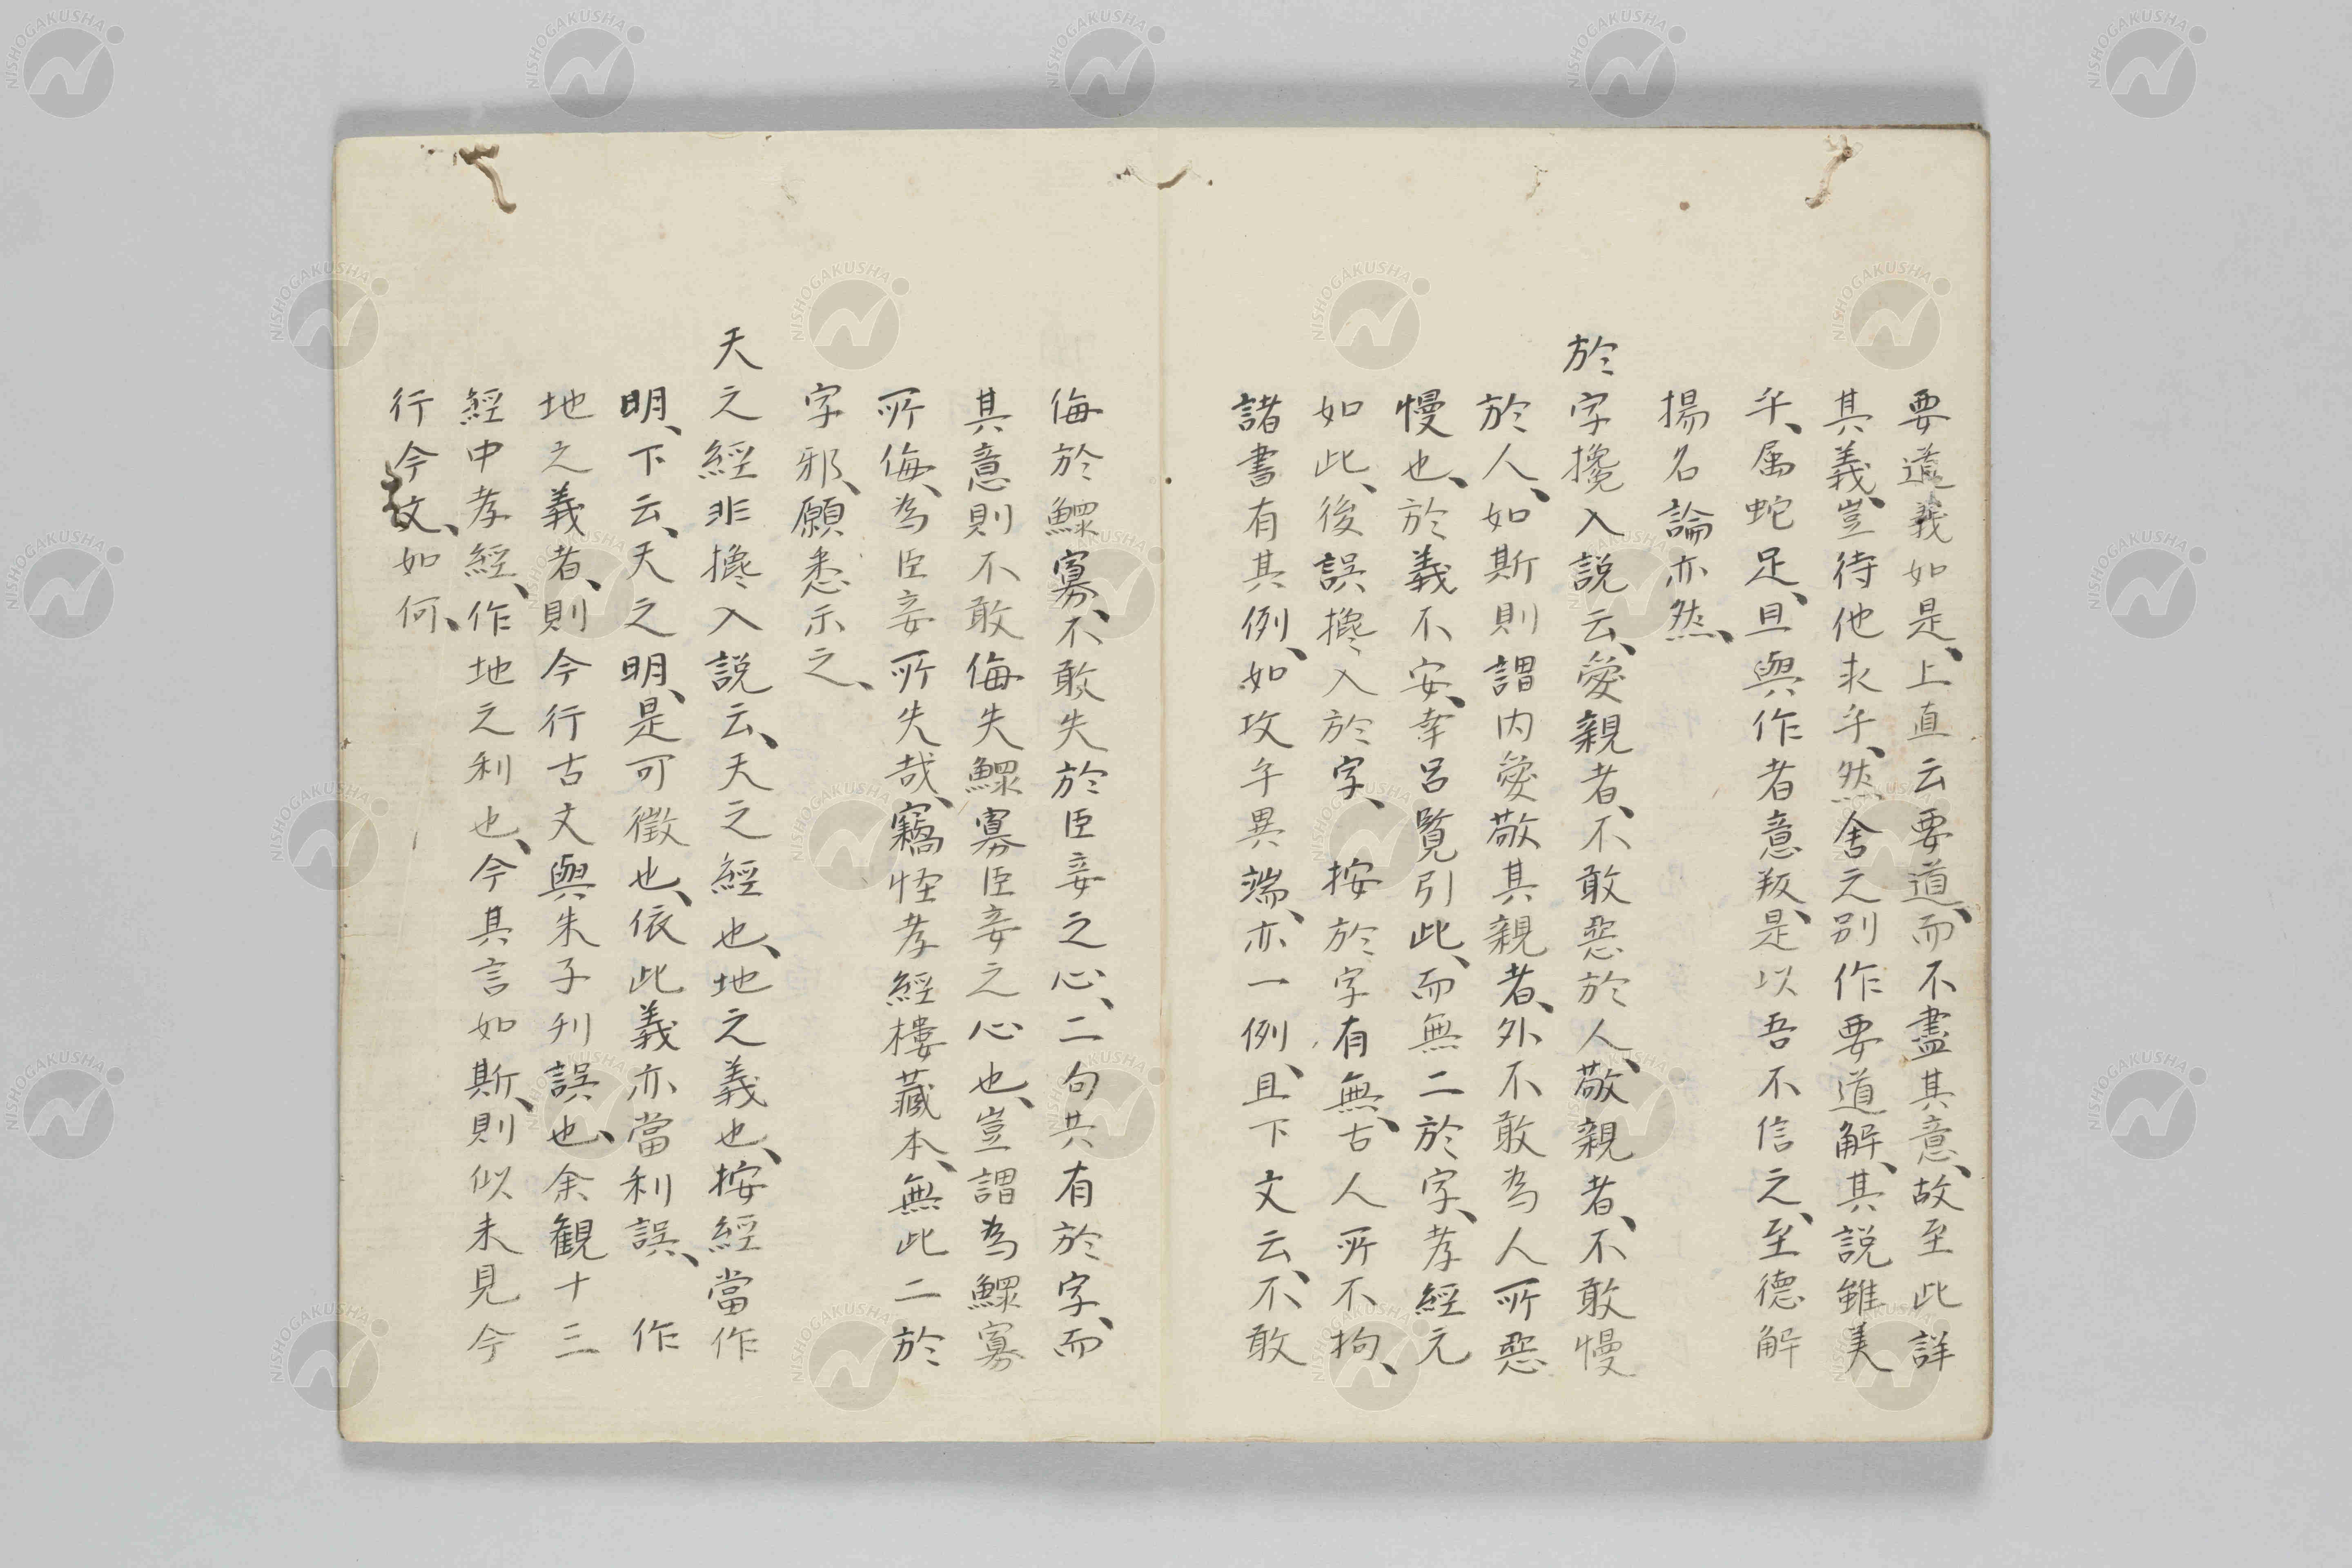 要道義如是、上直云要道、而不盡其意、故至此詳
其義、豈待他求乎、然舍之別作要道解、其説雖美
乎、属蛇足、且與作者意叛、是以吾不信之、至德解
揚名論亦然、
於字攙入説云、愛親者、不敢惡於人、敬親者、不敢慢
於人、如斯則謂内愛敬其親者、外不敢為人所惡
慢也、於義不安、幸呂覧引此、而無二於字、孝經元
如此、後誤攙入於字、 按於字有無、古人所不拘、
諸書有其例、如攻乎異端、亦一例、且下文云、不敢
侮於鰥寡、不敢失於臣妾之心、二句共有於字、而
其意則不敢侮失鰥寡臣妾之心也、豈謂為鰥寡
所侮、為臣妾所失哉、竊怪孝經樓藏本、無此二於
字邪、願悉示之、
天之經非攙入説云、天之經也、地之義也、按經當作
明、下云、天之明、是可徵也、依此義亦當利誤、 作
地之義者、則今行古文與朱子刋誤也、余観十三
經中孝經、作地之利也、今其言如斯、則似未見今
行今文、如何、